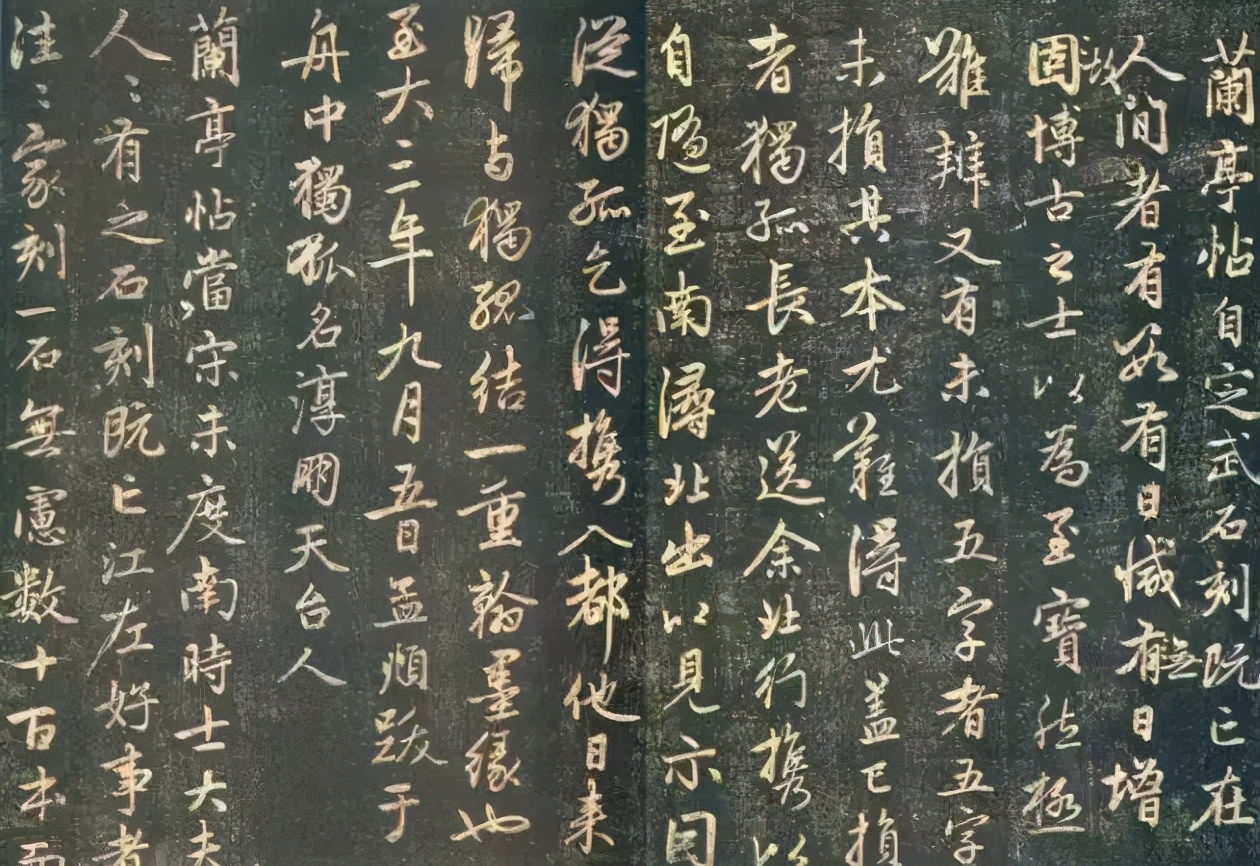 蘭亭帖自定武石刻既亡在
人間者有數有日減有無日增
故固博古之士以為至寶然極
難辨又有未損五字者五字
未損其本尤難得此蓋已損
者獨孤長老送余北行攜以
自隨至南潯北出以見示因
從獨孤乞得攜入都他日來
歸与獨孤結一重翰墨緣也
至大三年九月五日孟頫跋于
舟中獨孤名淳朋天台人
蘭亭帖當宋未度南時士大夫
人〻有之石刻既亡江左好事者
往〻家刻一石無慮數十百本而